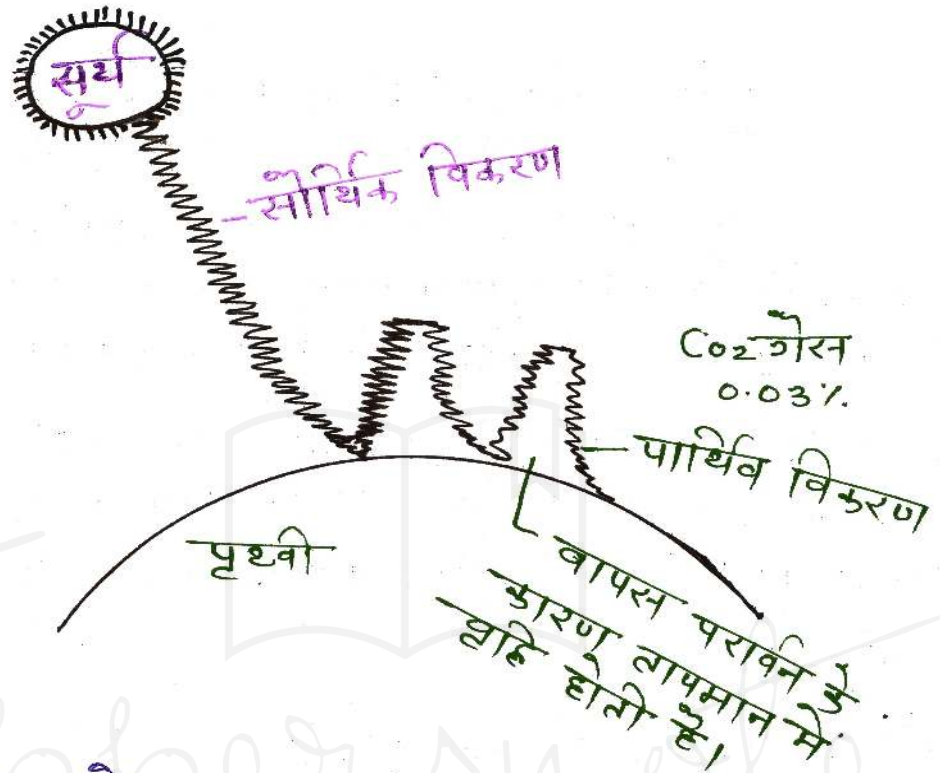 सूर्य
सौर्यिक विकरण
CO2 गैस
0.03%
पार्थिव विकरण
पृथ्वी
वापस परार्वन के
कारण तापमान में
वृद्धि होती है।